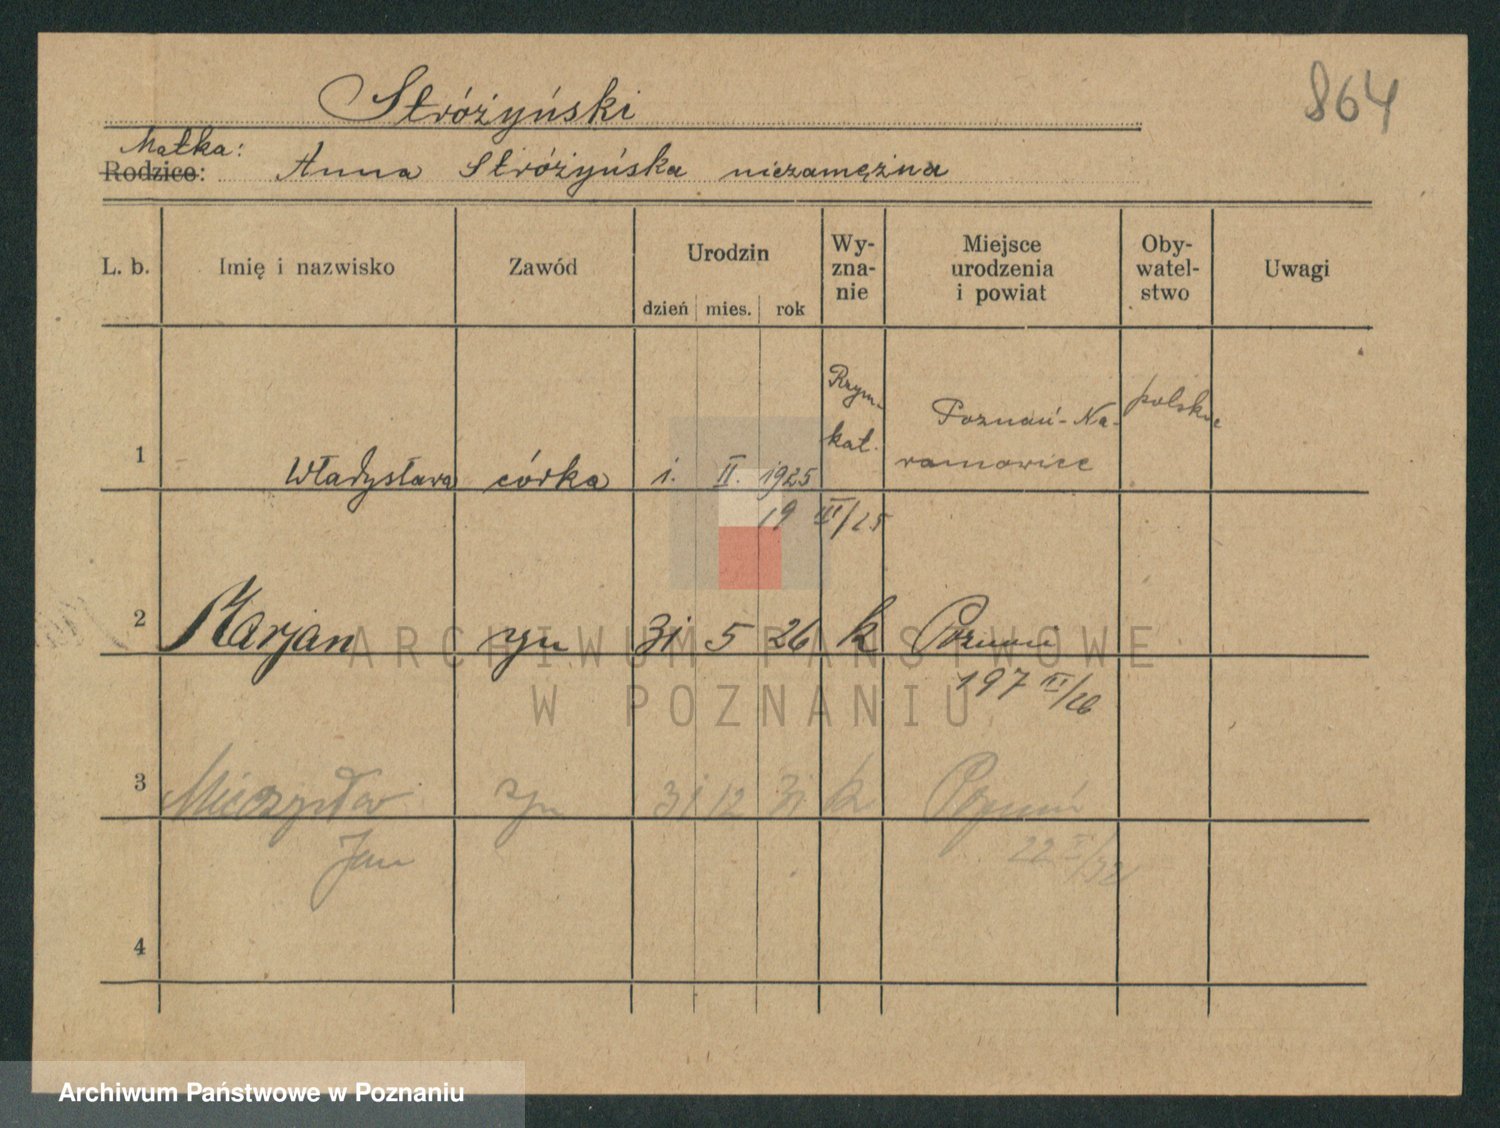 864
Stróżyński
Matka:
Rodzice: Anna Stróżyńska niezamężna
L. b. Imię i nazwisko Zawód Urodzin dzień mies. rok Wy-zna-nie Miejsce urodzenia i powiat Oby-watel-stwo Uwagi
1 Władysława córka 1. II. 1925 Rzym. kat. Poznań-Na-ramowice polskie
19 III/25
2 Marjan syn 31 5 26 k Poznań
197 VI/26
3 Mieczysław syn 31 12 31 k Poznań
Jan 22 I/32
4
ARCHIWUM PAŃSTWOWE
W POZNANIU
Archiwum Państwowe w Poznaniu